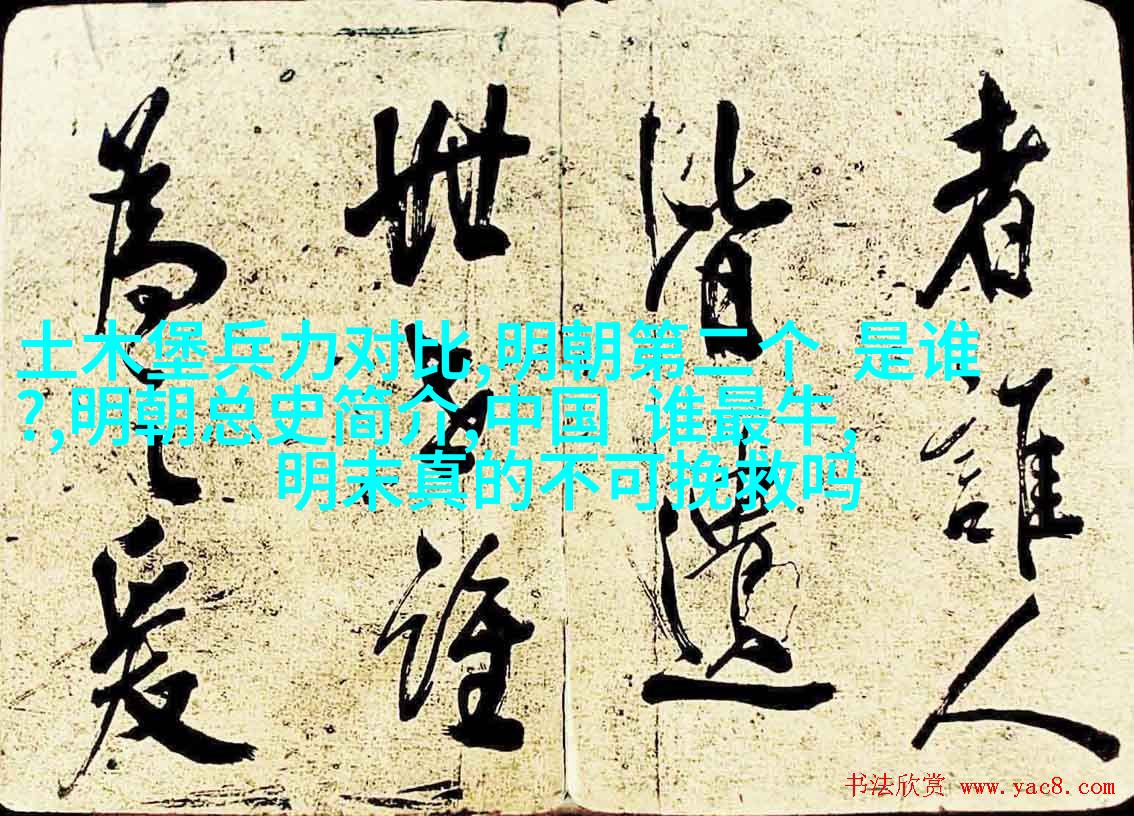 者誰人
皆遺
世 谁
为之爱
土木堡兵力对比,明朝第二个 是谁
?,明朝总史简介,中国 谁最牛,
明末真的不可挽救吗
书法欣赏 www.yac8.com